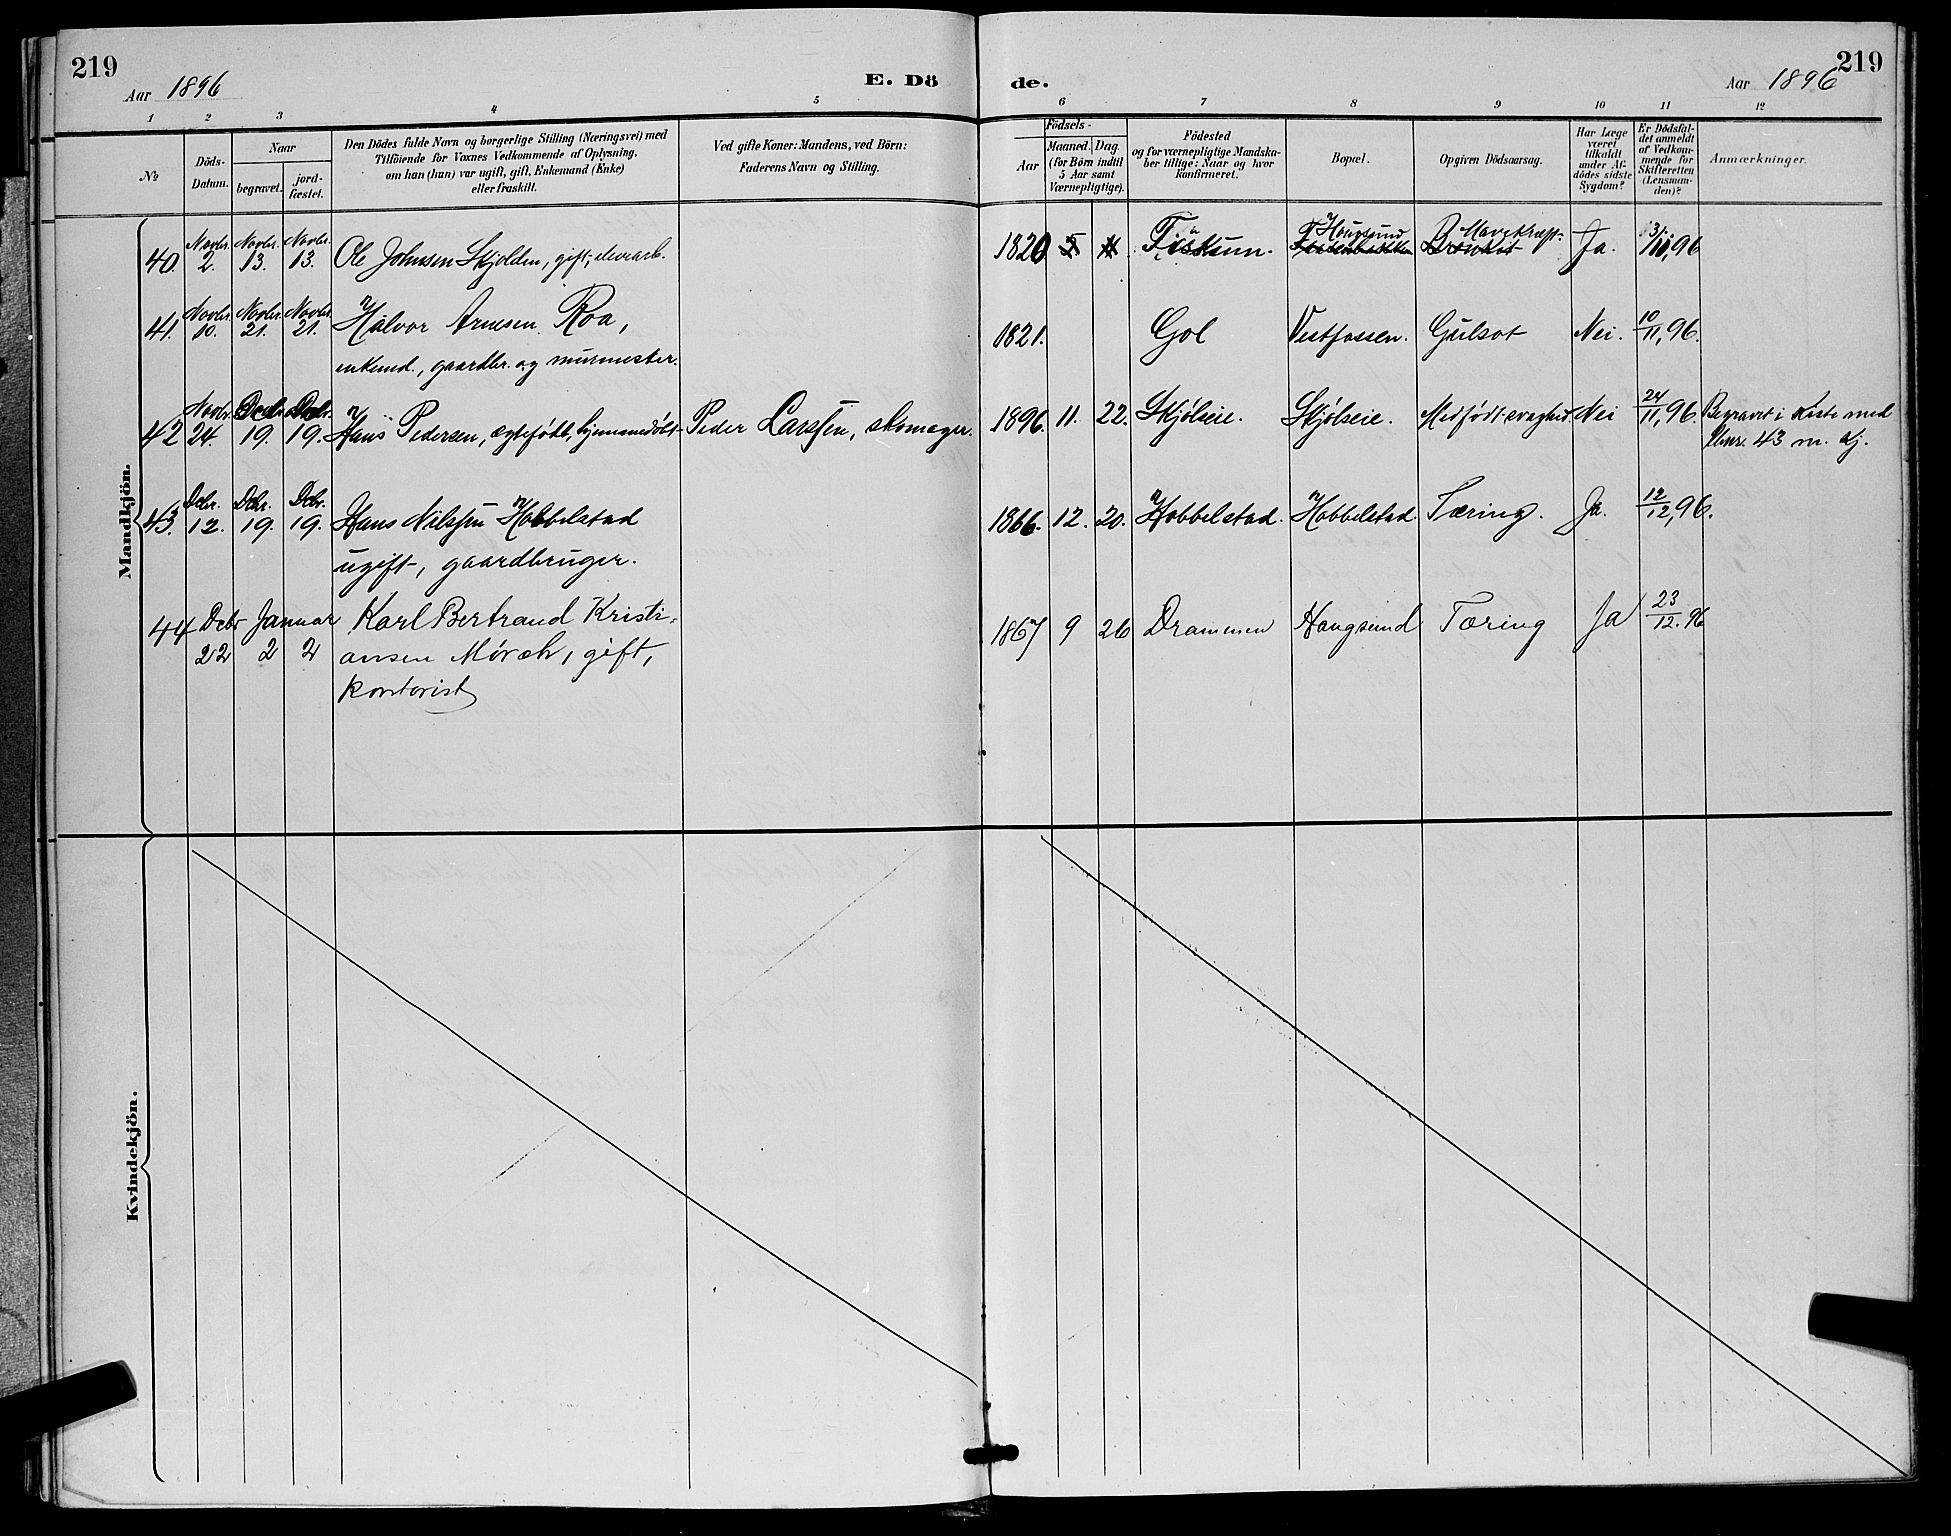 219
Aar 1896
E. Dö
de.
Aar 1896
219
1 2 3 4 5 6 7 8 9 10 11 12
№
Döds-
Datum.
Naar
begravet.
jord-
fæstet.
Den Dödes fulde Navn og borgerlige Stilling (Næringsvei) med
Tilföiende for Voxnes Vedkommende af Oplysning,
om han (hun) var ugift, gift, Enkemand (Enke)
eller fraskilt.
Ved gifte Koner: Mandens, ved Börn:
Faderens Navn og Stilling.
Födsels-
Aar
Maaned.
Dag.
(for Børn indtil
5 Aar samt
Værnepligtige).
Födested
og for værnepligtige Mandska-
ber tillige: Naar og hvor
konfirmeret.
Bopæl.
Opgiven Dödsaarsag.
Har Læge
været
tilkaldt
under Af-
dödes sidste
Sygdom?
Er Dödsfal-
det anmeldt
af Vedkom-
mende for
Skifteretten
(Lensman-
den)?
Anmærkninger.
Mandkjön.
40. Novbr. 2. Novbr. 13. Novbr. 13. Ole Johnsen Skjolden, gift, 1820 Fiskum. Hougsund Ja. 3/11,96
41. Novbr. 10. Novbr. 21. Novbr. 21. Halvor Arnesen Roa, 1821. Gol Vestfossen. Gulsot Nei. 10/11,96.
enkemd., gaardbr. og murmester.
42 Novbr. 24. Decbr. 19. Decbr. 19. Hans Pedersen, ægtefødt, hjemmedøbt Peder Larssen, skomager. 1896. 11. 22. Skjølseie. Skjølseie. Medfødt svaghed Nei 24/11,96. Begravet i kiste med
43 m. kj.
43. Dcbr. 12. Dcbr. 19. Dcbr. 19. Hans Nilssen Hobbelstad 1866. 12. 20. Hobbelstad. Hobbelstad. Tæring. Ja. 12/12,96.
ugift, gaardbruger.
44 Dcbr 22 Januar 2 2 Karl Bertrand Kristi- 1867 9 26 Drammen Hougsund Tæring Ja 23/12.96
ansen Mørch, gift,
kontorist
Kvindekjön.